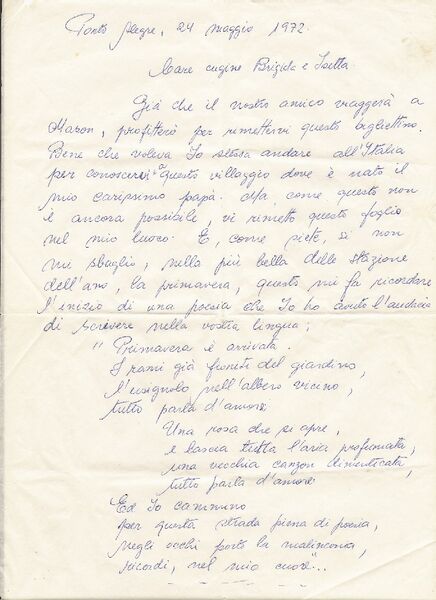 Porto Alegre, 24 maggio 1972.
Care cugine Brigida e Isetta.
Già che il vostro amico viaggerà a
Maron, profitterò per rimettervi questo bigliettino.
Bene che voleva Io stessa andare all'Italia
per conoscervi e questo villaggio dove è nato il
mio carissimo papà. Ma, come questo non
è ancora possibile, vi rimetto questo foglio
nel mio luogo. E, come siete, si non
mi sbaglio, nella più bella delle stazione
dell'ano, la primavera, questo mi fa ricordare
l'inizio di una poesia che Io ho avuto l'audacia
di scrivere nella vostra lingua;
"Primavera è arrivata.
I rami già fioriti del giardino,
l'usignolo nell'albero vicino,
tutto parla d'amore
Una rosa che si apre,
e lascia tutta l'aria profumata,
una vecchia canzon dimenticata,
tutto parla d'amore
Ed Io cammino
per questa strada piena di poesia,
negli occhi porto la malinconia,
ricordi, nel mio cuore"...